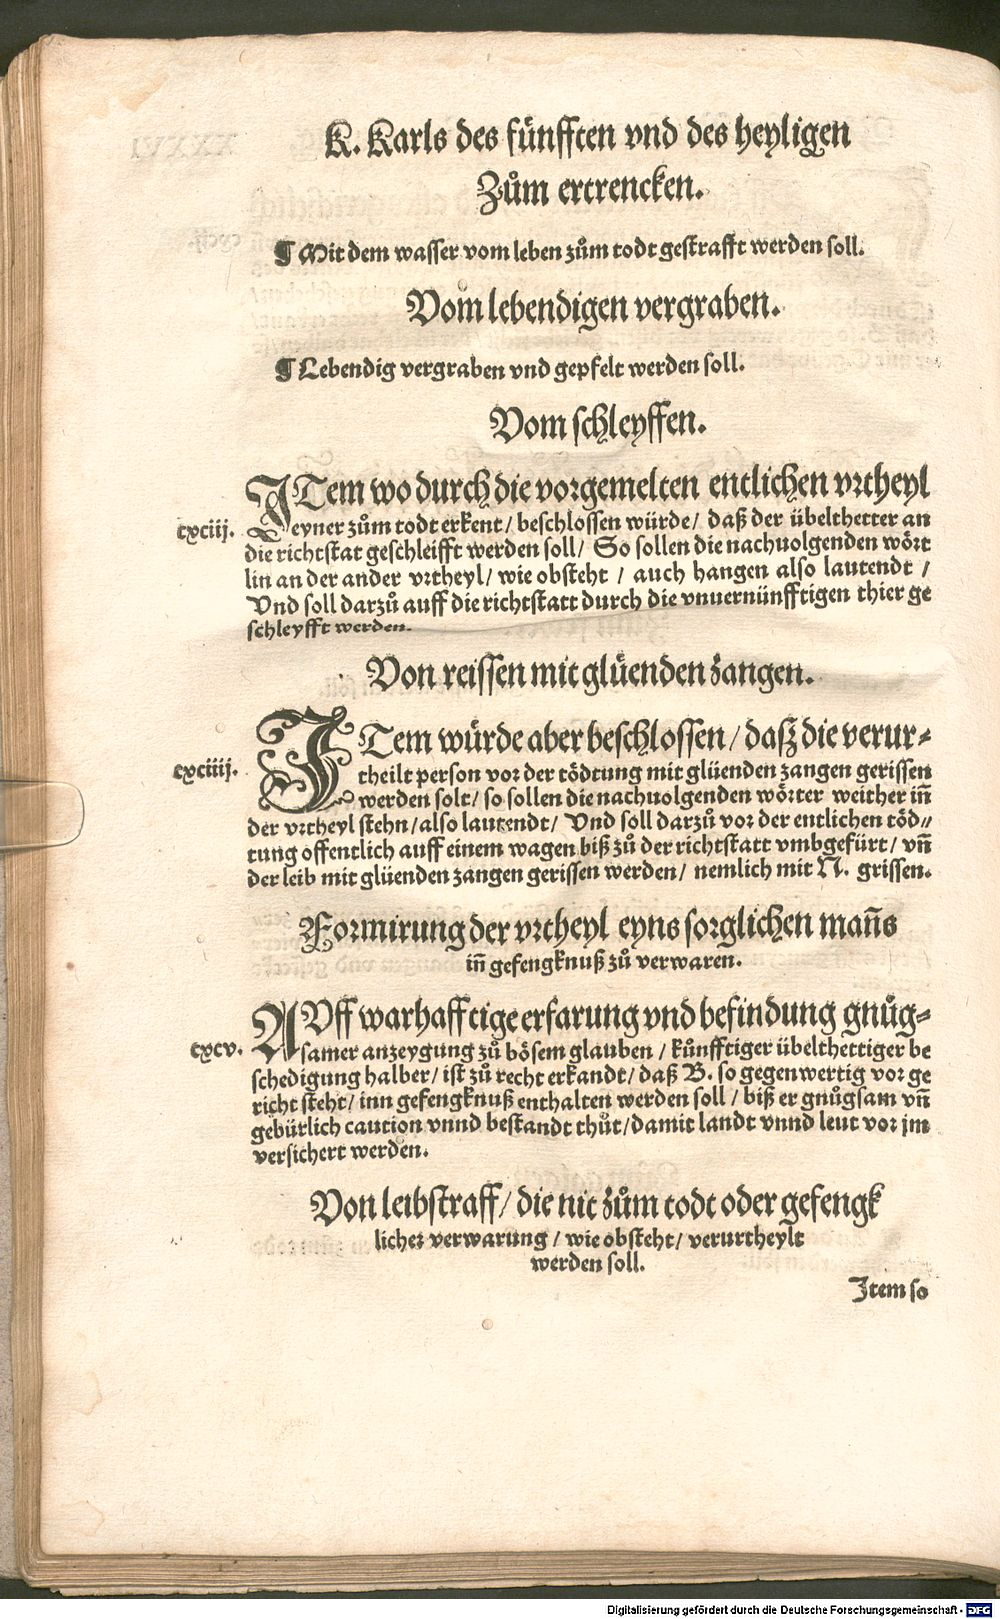 K. Karls des fünfften vnd des heyligen
Zům ertrencken.
¶ Mit dem wasser vom leben zům todt gestrafft werden soll.
Vom lebendigen vergraben.
¶ Lebendig vergraben vnd gepfelt werden soll.
Vom schleyffen.
ITem wo durch die vorgemelten entlichen vrtheyl
cxciij. eyner zům todt erkent / beschlossen würde / daß der übelthetter an
die richtstat geschleifft werden soll / So sollen die nachuolgenden wört
lin an der ander vrtheyl / wie obsteht / auch hangen also lautendt /
Vnd soll darzů auff die richtstatt durch die vnuernünfftigen thier ge
schleyfft werden.
Von reissen mit glüenden zangen.
ITem würde aber beschlossen / dasz die verur-
cxciiij. theilt person vor der tödtung mit glüenden zangen gerissen
werden solt / so sollen die nachuolgenden wörter weither iñ
der vrtheyl stehn / also lautendt / Vnd soll darzů vor der entlichen töd-
tung offentlich auff einem wagen biß zů der richtstatt vmbgefürt / vñ
der leib mit glüenden zangen gerissen werden / nemlich mit N. grissen.
Formirung der vrtheyl eyns sorglichen mañs
iñ gefengknuß zů verwaren.
AVff warhafftige erfarung vnd befindung gnůg-
cxcv. samer anzeygung zů bösem glauben / künfftiger übelthettiger be
schedigung halber / ist zů recht erkandt / daß B. so gegenwertig vor ge
richt steht / inn gefengknuß enthalten werden soll / biß er gnůgsam vñ
gebürlich caution vnnd bestandt thůt / damit landt vnnd leut vor jm
versichert werden.
Von leibstraff / die nit zům todt oder gefengk
licher verwarung / wie obsteht / verurtheylt
werden soll.
Item so
Digitalisierung gefördert durch die Deutsche Forschungsgemeinschaft - DFG